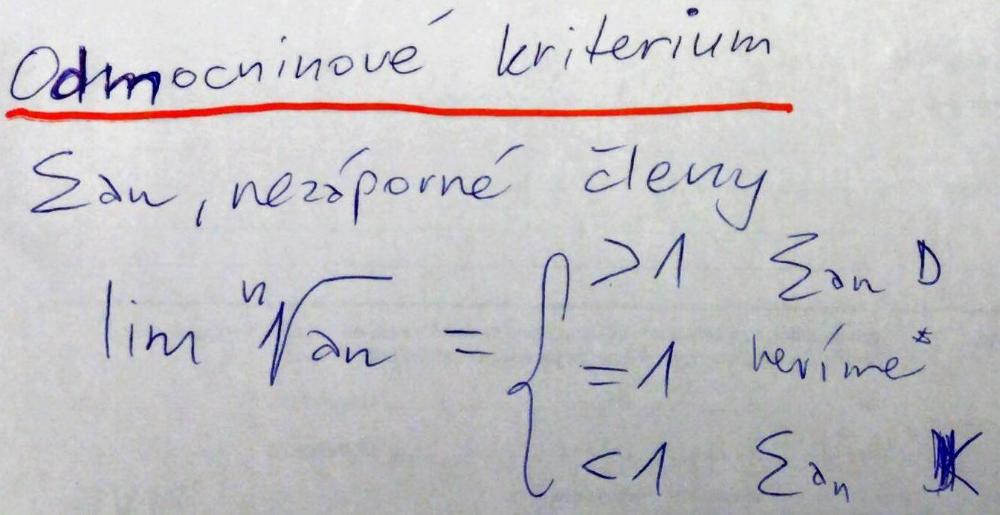 Odmocninové kriterium
Σan, nezáporné členy
lim ⁿ√an = { >1 Σan D
=1 nevíme*
<1 Σan K